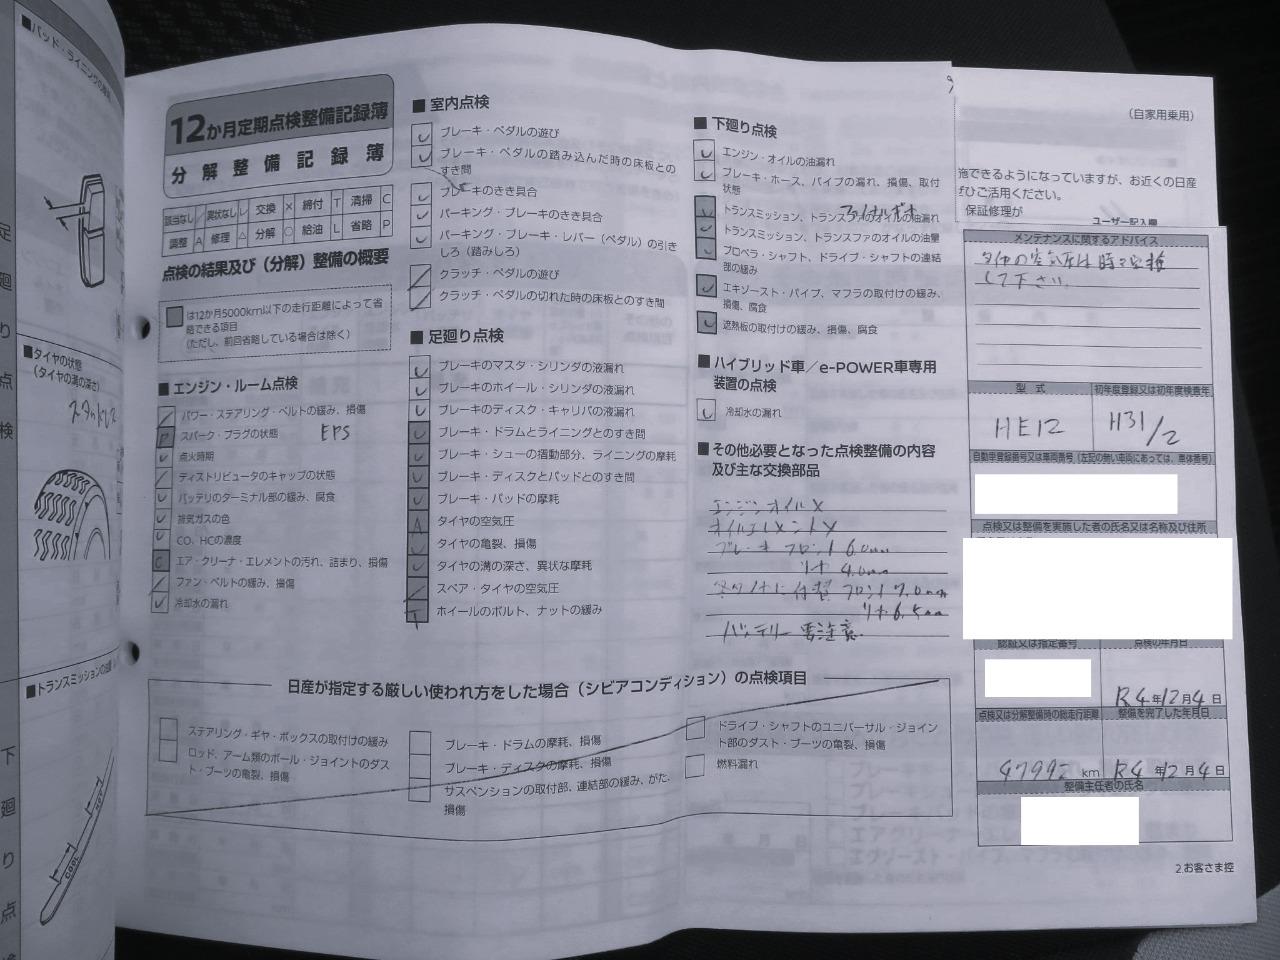 ■パッド・ライニングの
■タイヤの状態
(タイヤの溝の深さ)
スタッドレス
■トランスミッションの
COOL
HOT
足
廻
り
点
検
下
廻
り
点
12か月定期点検整備記録簿
分解整備記録簿
該当なし / 異状なし レ 交換 × 締付 T 清掃 C
調整 A 修理 △ 分解 ○ 給油 L 省略 P
点検の結果及び(分解)整備の概要
は12か月5000km以下の走行距離によって省
略できる項目
(ただし、前回省略している場合は除く)
■エンジン・ルーム点検
パワー・ステアリング・ベルトの緩み、損傷
EPS
P スパーク・プラグの状態
点火時期
ディストリビュータのキャップの状態
バッテリのターミナル部の緩み、腐食
排気ガスの色
CO、HCの濃度
C エア・クリーナ・エレメントの汚れ、詰まり、損傷
ファン・ベルトの緩み、損傷
冷却水の漏れ
■室内点検
ブレーキ・ペダルの遊び
ブレーキ・ペダルの踏み込んだ時の床板との
すき間
ブレーキのきき具合
パーキング・ブレーキのきき具合
パーキング・ブレーキ・レバー(ペダル)の引き
しろ(踏みしろ)
クラッチ・ペダルの遊び
クラッチ・ペダルの切れた時の床板とのすき間
■足廻り点検
ブレーキのマスタ・シリンダの液漏れ
ブレーキのホイール・シリンダの液漏れ
ブレーキのディスク・キャリパの液漏れ
ブレーキ・ドラムとライニングとのすき間
ブレーキ・シューの摺動部分、ライニングの摩耗
ブレーキ・ディスクとパッドとのすき間
ブレーキ・パッドの摩耗
A タイヤの空気圧
タイヤの亀裂、損傷
タイヤの溝の深さ、異状な摩耗
スペア・タイヤの空気圧
T ホイールのボルト、ナットの緩み
■下廻り点検
エンジン・オイルの油漏れ
ブレーキ・ホース、パイプの漏れ、損傷、取付
状態
トランスミッション、トランスファのオイルの油漏れ
トランスミッション、トランスファのオイルの油量
プロペラ・シャフト、ドライブ・シャフトの連結
部の緩み
エキゾースト・パイプ、マフラの取付けの緩み、
損傷、腐食
遮熱板の取付けの緩み、損傷、腐食
■ハイブリッド車/e-POWER車専用
装置の点検
冷却水の漏れ
■その他必要となった点検整備の内容
及び主な交換部品
エンジンオイル X
オイルエレメント X
ブレーキ フロント 6.0mm
リヤ 4.0mm
冬タイヤに付替 フロント 7.0mm
リヤ 6.5mm
バッテリー 要注意
日産が指定する厳しい使われ方をした場合(シビアコンディション)の点検項目
ステアリング・ギヤ・ボックスの取付けの緩み
ロッド、アーム類のボール・ジョイントのダス
ト・ブーツの亀裂、損傷
ブレーキ・ドラムの摩耗、損傷
ブレーキ・ディスクの摩耗、損傷
サスペンションの取付部、連結部の緩み、がた、
損傷
ドライブ・シャフトのユニバーサル・ジョイン
ト部のダスト・ブーツの亀裂、損傷
燃料漏れ
(自家用乗用)
施できるようになっていますが、お近くの日産
ぜひご活用ください。
保証修理が
ユーザー記入欄
メンテナンスに関するアドバイス
タイヤの空気圧は時々点検
して下さい。
型式
HE12
初年度登録又は初年度検査年
H31/2
自動車登録番号又は車両番号(左記の無い車両にあっては、車体番号)
点検又は整備を実施した者の氏名又は名称及び住所
認証又は指定番号
点検の年月日
R4年12月4日
点検又は分解整備時の総走行距離
47992 km
整備を完了した年月日
R4年12月4日
整備主任者の氏名
2.お客さま控